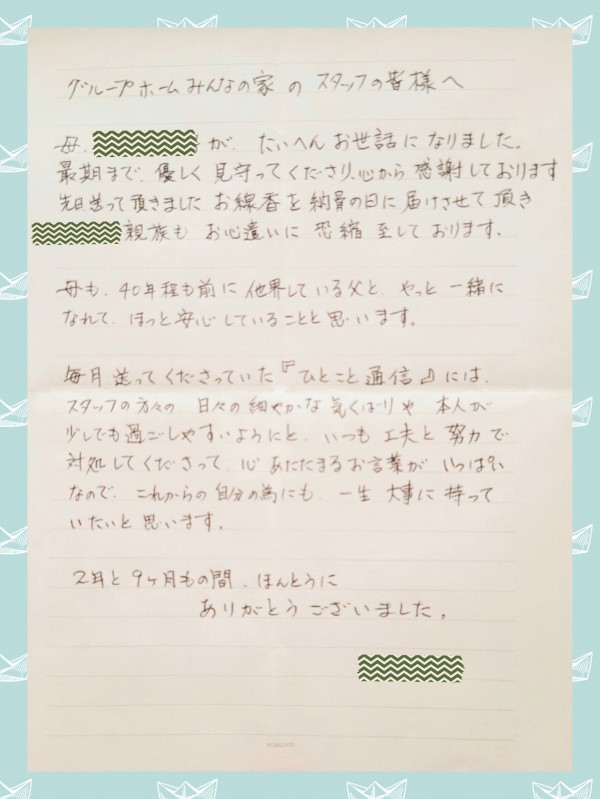 グループホームみんなの家のスタッフの皆様へ
母、が、たいへんお世話になりました。
最期まで、優しく見守ってくださり、心から感謝しております
先日送って頂きましたお線香を納骨の日に届けさせて頂き
親族もお心遣いに恐縮至しております。
母も、40年程も前に他界している父と、やっと一緒に
なれて、ほっと安心していることと思います。
毎月送ってくださっていた『ひとこと通信』には、
スタッフの方々の日々の細やかな気くばりや本人が
少しでも過ごしやすいようにと、いつも工夫と努力で
対処してくださって、心あたたまるお言葉がいっぱい
なので、これからの自分の為にも、一生大事に持って
いたいと思います。
2年と9ヶ月もの間、ほんとうに
ありがとうございました。
KOKUYO